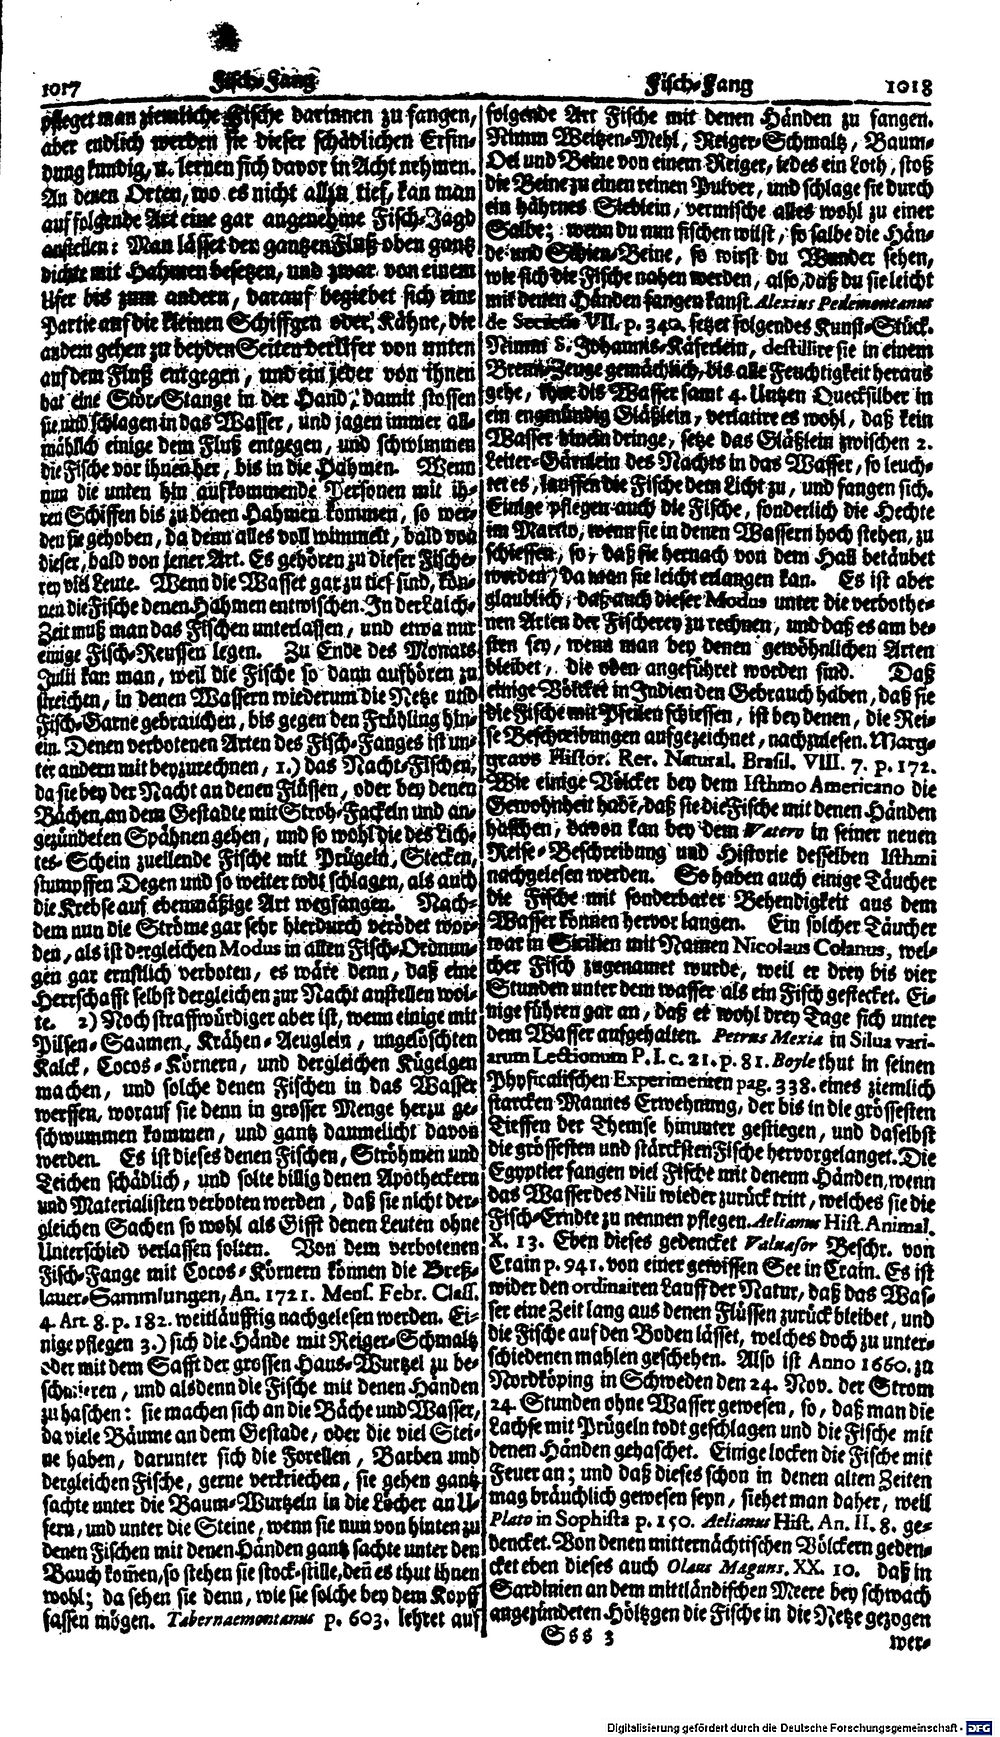 1017 Fisch-Fang
pfleget man ziemliche Fische darinnen zu fangen,
aber endlich werden sie dieser schädlichen Erfin-
dung kundig, u. lernen sich davor in Acht nehmen.
An denen Orten, wo es nicht allzu tief, kan man
auf folgende Art eine gar angenehme Fisch-Jagd
anstellen: Man lässet den gantzen Fluß oben gantz
dichte mit Hahmen besetzen, und zwar von einem
Ufer bis zum andern, darauf begiebet sich eine
Partie auf die kleinen Schiffgen oder Kähne, die
andern gehen zu beyden Seiten der Ufer von unten
auf dem Fluß entgegen, und ein jeder von ihnen
hat eine Stör-Stange in der Hand, damit stossen
sie und schlagen in das Wasser, und jagen immer all-
mählich einige dem Fluß entgegen, und schwimmen
die Fische vor ihnen her, bis in die Hahmen. Wenn
nun die unten hin aufkommende Personen mit ih-
ren Schiffen bis zu denen Hahmen kommen, so wer-
den sie gehoben, da denn alles voll wimmelt, bald von
dieser, bald von jener Art. Es gehören zu dieser Fische-
rey viel Leute. Wenn die Wasser gar zu tief sind, kön-
nen die Fische denen Hahmen entwischen. In der Laich-
Zeit muß man das Fischen unterlassen, und etwa nur
einige Fisch-Reussen legen. Zu Ende des Monats
Julii kan man, weil die Fische so dann aufhören zu
streichen, in denen Wassern wiederum die Netze und
Fisch-Garne gebrauchen, bis gegen den Frühling hin-
ein. Denen verbotenen Arten des Fisch-Fanges ist un-
ter andern mit beyzurechnen, 1.) das Nacht-Fischen,
da sie bey der Nacht an denen Flüssen, oder bey denen
Bächen, an dem Gestadte mit Stroh-Fackeln und an-
gezündeten Spähnen gehen, und so wohl die des Lich-
tes-Schein zueilende Fische mit Prügeln, Stecken,
stumpffen Degen und so weiter todt schlagen, als auch
die Krebse auf ebenmäßige Art wegfangen. Nach-
dem nun die Ströme gar sehr hierdurch verödet wor-
den, als ist dergleichen Modus in allen Fisch-Ordnun-
gen gar ernstlich verboten, es wäre denn, daß eine
Herrschafft selbst dergleichen zur Nacht anstellen wol-
te. 2) Noch straffwürdiger aber ist, wenn einige mit
Pilsen-Saamen, Krähen-Aeuglein, ungelöschten
Kalck, Cocos-Körnern, und dergleichen Kügelgen
machen, und solche denen Fischen in das Wasser
werffen, worauf sie denn in grosser Menge herzu ge-
schwummen kommen, und gantz daumelicht davon
werden. Es ist dieses denen Fischen, Ströhmen und
Teichen schädlich, und solte billig denen Apotheckern
und Materialisten verboten werden, daß sie nicht der-
gleichen Sachen so wohl als Gifft denen Leuten ohne
Unterschied verlassen solten. Von dem verbotenen
Fisch-Fange mit Cocos-Körnern können die Breß-
lauer-Sammlungen, An. 1721. Mens. Febr. Class.
4. Art. 8. p. 182. weitläufftig nachgelesen werden. Ei-
nige pflegen 3.) sich die Hände mit Reiger-Schmaltz
oder mit dem Safft der grossen Haus-Wurtzel zu be-
schmieren, und alsdenn die Fische mit denen Händen
zu haschen: sie machen sich an die Bäche und Wasser,
da viele Bäume an dem Gestade, oder die viel Stei-
ne haben, darunter sich die Forellen, Barben und
dergleichen Fische, gerne verkriechen, sie gehen gantz
sachte unter die Baum-Wurtzeln in die Löcher an U-
fern, und unter die Steine, wenn sie nun von hinten zu
denen Fischen mit denen Händen gantz sachte unter den
Bauch kom̃en, so stehen sie stock-stille, deñ es thut ihnen
wohl; da sehen sie denn, wie sie solche bey dem Kopff
fassen mögen. Tabernaemontanus p. 603. lehret auf
Fisch-Fang 1018
folgende Art Fische mit denen Händen zu fangen.
Nimm Weitzen-Mehl, Reiger-Schmaltz, Baum-
Oel und Beine von einem Reiger, iedes ein Loth, stoß
die Beine zu einen reinen Pulver, und schlage sie durch
ein hährnes Sieblein, vermische alles wohl zu einer
Salbe; wenn du nun fischen wilst, so salbe die Hän-
de und Schien-Beine, so wirst du Wunder sehen,
wie sich die Fische nahen werden, also, daß du sie leicht
mit denen Händen fangen kanst. Alexius Pedemontanus
de Secretis VII. p. 340. setzet folgendes Kunst-Stück.
Nimm S. Johannis-Käferlein, destillire sie in einem
Brenn-Zeuge gemächlich, bis alle Feuchtigkeit heraus
gehe, thue dis Wasser samt 4. Untzen Quecksilber in
ein engmündig Gläßlein, verlutire es wohl, daß kein
Wasser hinein dringe, setze das Gläßlein zwischen 2.
Leiter-Gärnlein des Nachts in das Wasser, so leuch-
tet es, lauffen die Fische dem Licht zu, und fangen sich.
Einige pflegen auch die Fische, sonderlich die Hechte
im Martio, wenn sie in denen Wassern hoch stehen, zu
schiessen, so, daß sie hernach von dem Hall betäubet
werden, da man sie leicht erlangen kan. Es ist aber
glaublich, daß auch dieser Modus unter die verbothe-
nen Arten der Fischerey zu rechnen, und daß es am be-
sten sey, wenn man bey denen gewöhnlichen Arten
bleibet, die oben angeführet worden sind. Daß
einige Völcker in Indien den Gebrauch haben, daß sie
die Fische mit Pfeilen schiessen, ist bey denen, die Rei-
se Beschreibungen aufgezeichnet, nachzulesen. Marg-
gravs Histor. Rer. Natural. Brasil. VIII. 7. p. 172.
Wie einige Völcker bey dem Isthmo Americano die
Gewohnheit habe, daß sie die Fische mit denen Händen
haschen, davon kan bey dem Wafero in seiner neuen
Reise-Beschreibung und Historie desselben Isthmi
nachgelesen werden. So haben auch einige Täucher
die Fische mit sonderbarer Behendigkeit aus dem
Wasser können hervor langen. Ein solcher Täucher
war in Sicilien mit Namen Nicolaus Colanus, wel-
cher Fisch zugenamet wurde, weil er drey bis vier
Stunden unter dem wasser als ein Fisch gestecket. Ei-
nige führen gar an, daß er wohl drey Tage sich unter
dem Wasser aufgehalten. Petrus Mexia in Silua vari-
arum Lectionum P. I. c. 21. p. 81. Boyle thut in seinen
Physicalischen Experimenten pag. 338. eines ziemlich
starcken Mannes Erwehnung, der bis in die grössesten
Tieffen der Themse hinunter gestiegen, und daselbst
die grössesten und stärcksten Fische hervorgelanget. Die
Egyptier fangen viel Fische mit denenn Händen, wenn
das Wasser des Nili wieder zurück tritt, welches sie die
Fisch-Erndte zu nennen pflegen. Aelianus Hist. Animal.
X. 13. Eben dieses gedencket Valuasor Beschr. von
Crain p. 941. von einer gewissen See in Crain. Es ist
wider den ordinairen Lauff der Natur, daß das Was-
ser eine Zeit lang aus denen Flüssen zurück bleibet, und
die Fische auf den Boden lässet, welches doch zu unter-
schiedenen mahlen geschehen. Also ist Anno 1660. zu
Nordköping in Schweden den 24. Nov. der Strom
24. Stunden ohne Wasser gewesen, so, daß man die
Lachse mit Prügeln todt geschlagen und die Fische mit
denen Händen gehaschet. Einige locken die Fische mit
Feuer an; und daß dieses schon in denen alten Zeiten
mag bräuchlich gewesen seyn, siehet man daher, weil
Plato in Sophista p. 150. Aelianus Hist. An. II. 8. ge-
dencket. Von denen mitternächtischen Völckern geden-
cket eben dieses auch Olaus Magnus, XX. 10. daß in
Sardinien an dem mittländischen Meere bey schwach
angezündeten Höltzgen die Fische in die Netze gezogen
Sss 3 wer-
Digitalisierung gefördert durch die Deutsche Forschungsgemeinschaft - DFG